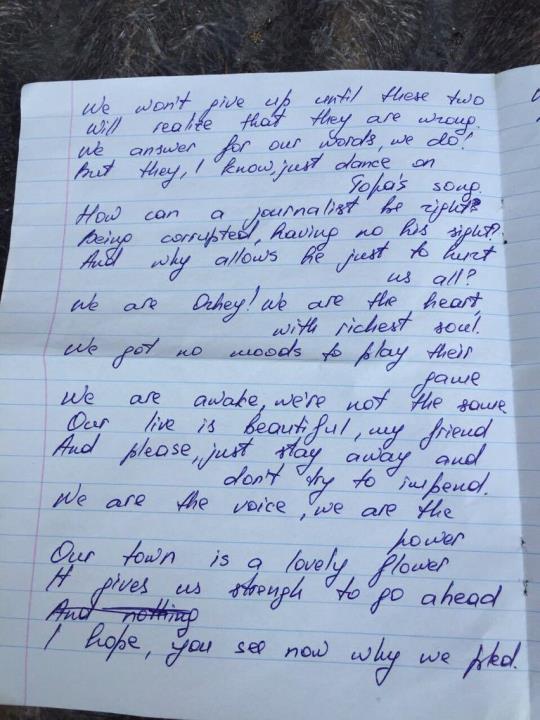 We won't give up until these two
Will realize that they are wrong.
We answer for our words, we do!
But they, I know, just dance on
Topa's song.
How can a journalist be right?
Being corrupted, having no his sight?
And why allows he just to hurt
us all?
We are Orhey! We are the heart,
with richest soul.
We got no moods to play their
game
We are awake, we're not the same
Our live is beautiful, my friend
And please, just stay away and
don't try to impend.
We are the voice, we are the
power
Our town is a lovely flower
It gives us strengh to go ahead
And nothing
I hope, you see now why we pled.